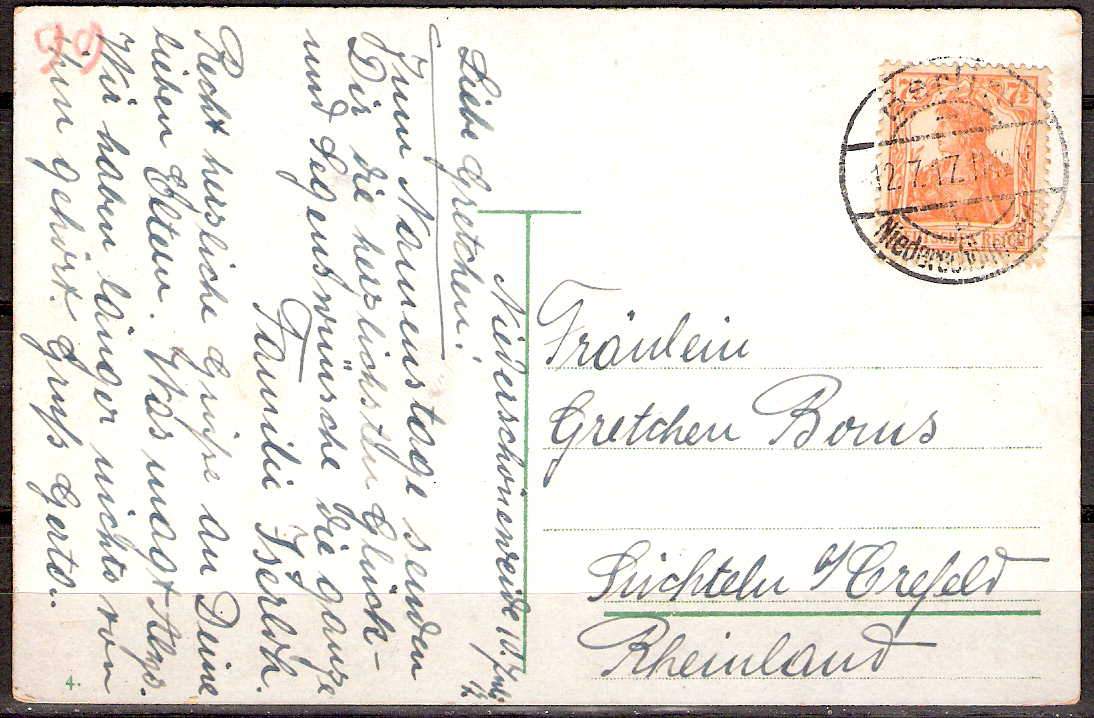 Niederschöneweide 10. Juli 17.
Liebe Gretchen!
Zum Namenstage senden
Dir die herzlichsten Glück-
und Segenswünsche die ganze
Familie Iserloh.
Recht herzliche Grüße an Deine
lieben Eltern. Was macht Alys.
Wir haben länger nichts von
ihm gehört. Gruß Gerta.
Fräulein
Gretchen Bous
Süchteln b/Crefeld
Rheinland
Berlin
12.7.17.
Niederschönew
7½ 7½
REICH
4.